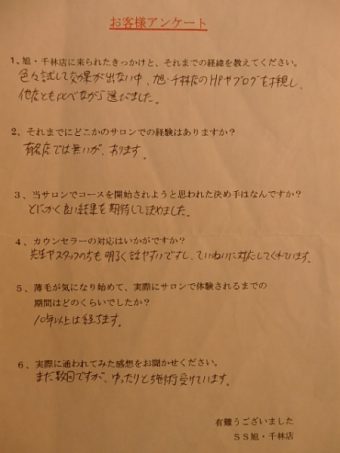 お客様アンケート
1、旭・千林店に来られたきっかけと、それまでの経緯を教えてください。
色々試して効果が出ない中、旭・千林店のHPやブログを拝見し、
他店とも比べながら選びました。
2、それまでにどこかのサロンでの経験はありますか？
有名店では無いが、あります。
3、当サロンでコースを開始されようと思われた決め手はなんですか？
とにかく良い結果を期待して決めました。
4、カウンセラーの対応はいかがですか？
先生やスタッフの方も明るく話やすいですし、ていねいに対応してくれています。
5、薄毛が気になり始めて、実際にサロンで体験されるまでの
期間はどのくらいでしたか？
10年以上は経ちます。
6、実際に通われてみた感想をお聞かせください。
まだ数回ですが、ゆったりと受けています。
有難うございました
ＳＳ旭・千林店